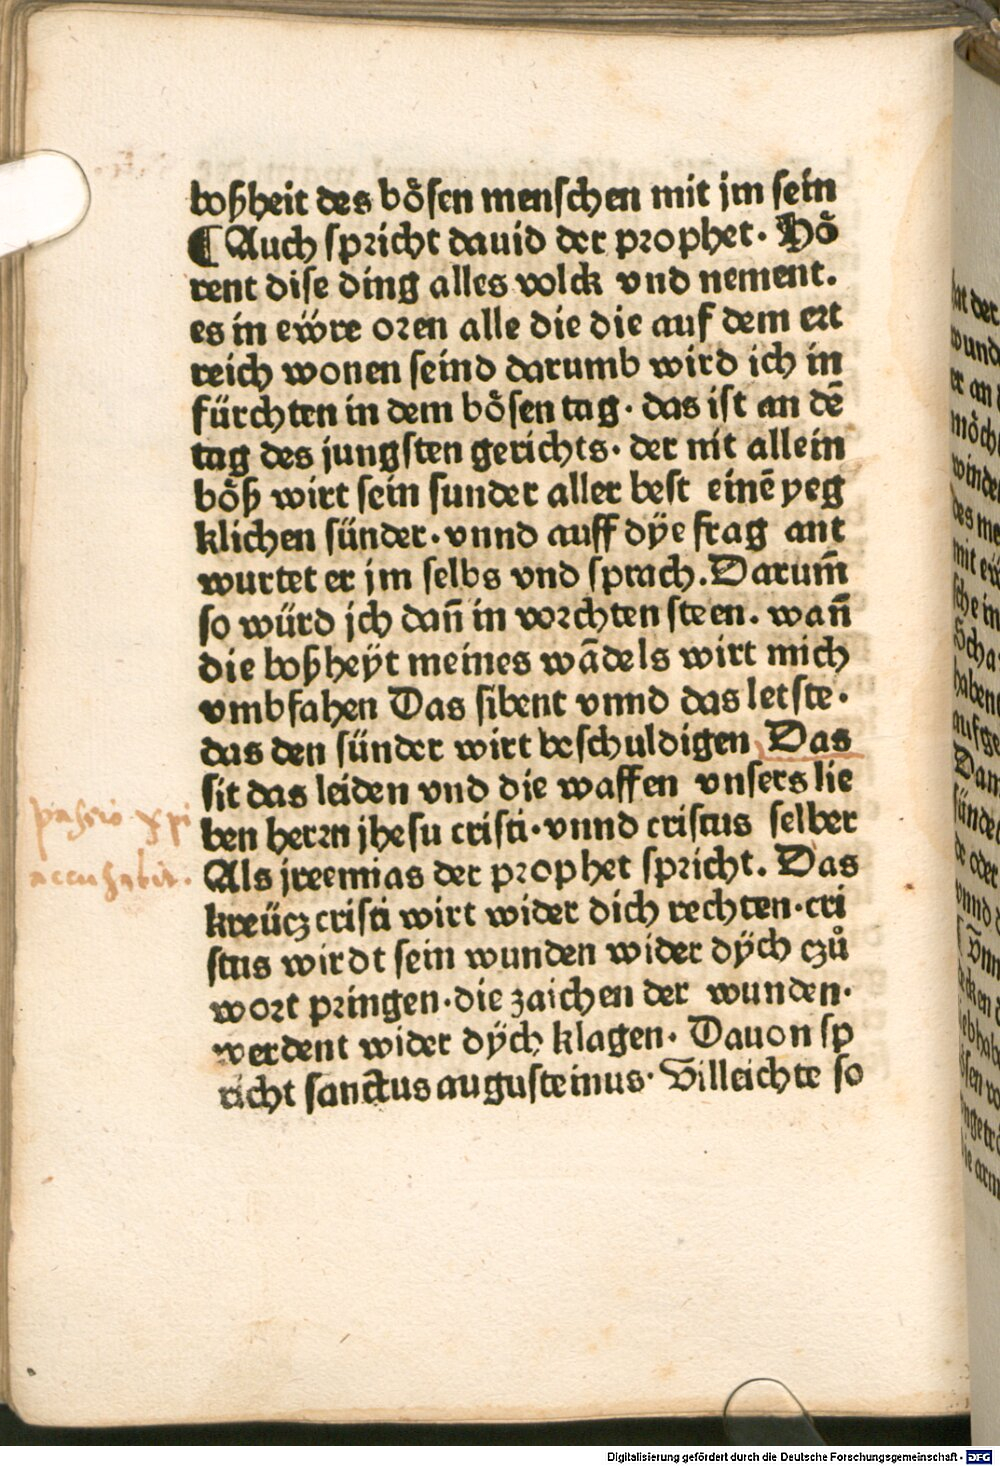 boßheit des bösen menschen mit jm sein
¶ Auch spricht dauid der prophet. Hö
rent dise ding alles volck vnd nement.
es in eẅre oren alle die die auf dem ert
reich wonen seind darumb wird ich in
fürchten in dem bösen tag. das ist an dē
tag des jungsten gerichts. der nit allein
böß wirt sein sunder aller best einē yeg
klichen sünder. vnnd auff dÿe frag ant
wurtet er jm selbs vnd sprach. Darum̄
so würd jch dan̄ in vorchten steen. wan̄
die boßheÿt meines wādels wirt mich
vmbfahen Das sibent vnnd das letste.
das den sünder wirt beschuldigen Das
sit das leiden vnd die waffen vnsers lie
ben herrn jhesu cristi. vnnd cristus selber
Als jreemias der prophet spricht. Das
kreücz cristi wirt wider dich rechten. cri
stus wirdt sein wunden wider dÿch czů
wort pringen. die zaichen der wunden.
werdent wider dÿch klagen. Dauon sp
richt sanctus augusteinus. Villeichte so
passio xpi
accusabit.
hat der
wund
er an
möch
winde
des me
mit eẅ
sche in
Scha
habent
aufge
Dan
sünde
de oder
vnnd
Vnn
Digitalisierung gefördert durch die Deutsche Forschungsgemeinschaft - DFG